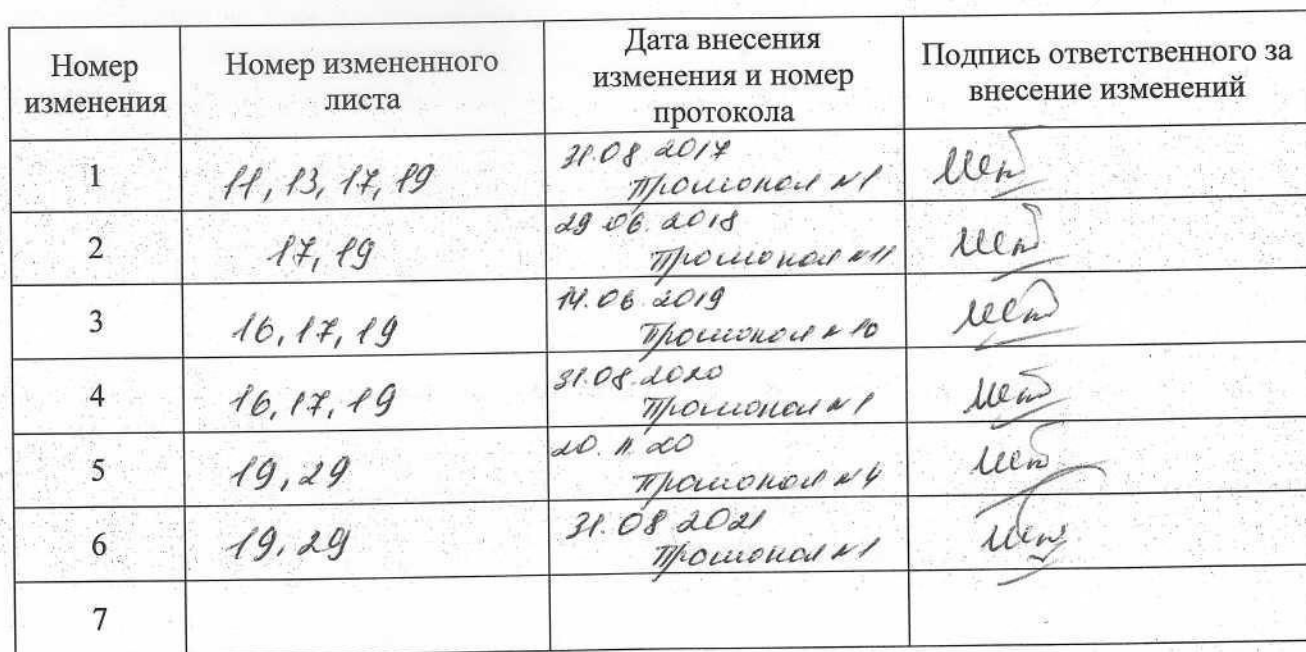 Номер изменения
Номер измененного листа
Дата внесения изменения и номер протокола
Подпись ответственного за внесение изменений
1
11, 13, 17, 19
31.08.2017
Протокол №1
2
17, 19
29.06.2018
Протокол №11
3
16, 17, 19
14.06.2019
Протокол №10
4
16, 17, 19
31.08.2020
Протокол №1
5
19, 29
20.11.20
Протокол №4
6
19, 29
31.08.2021
Протокол №1
7